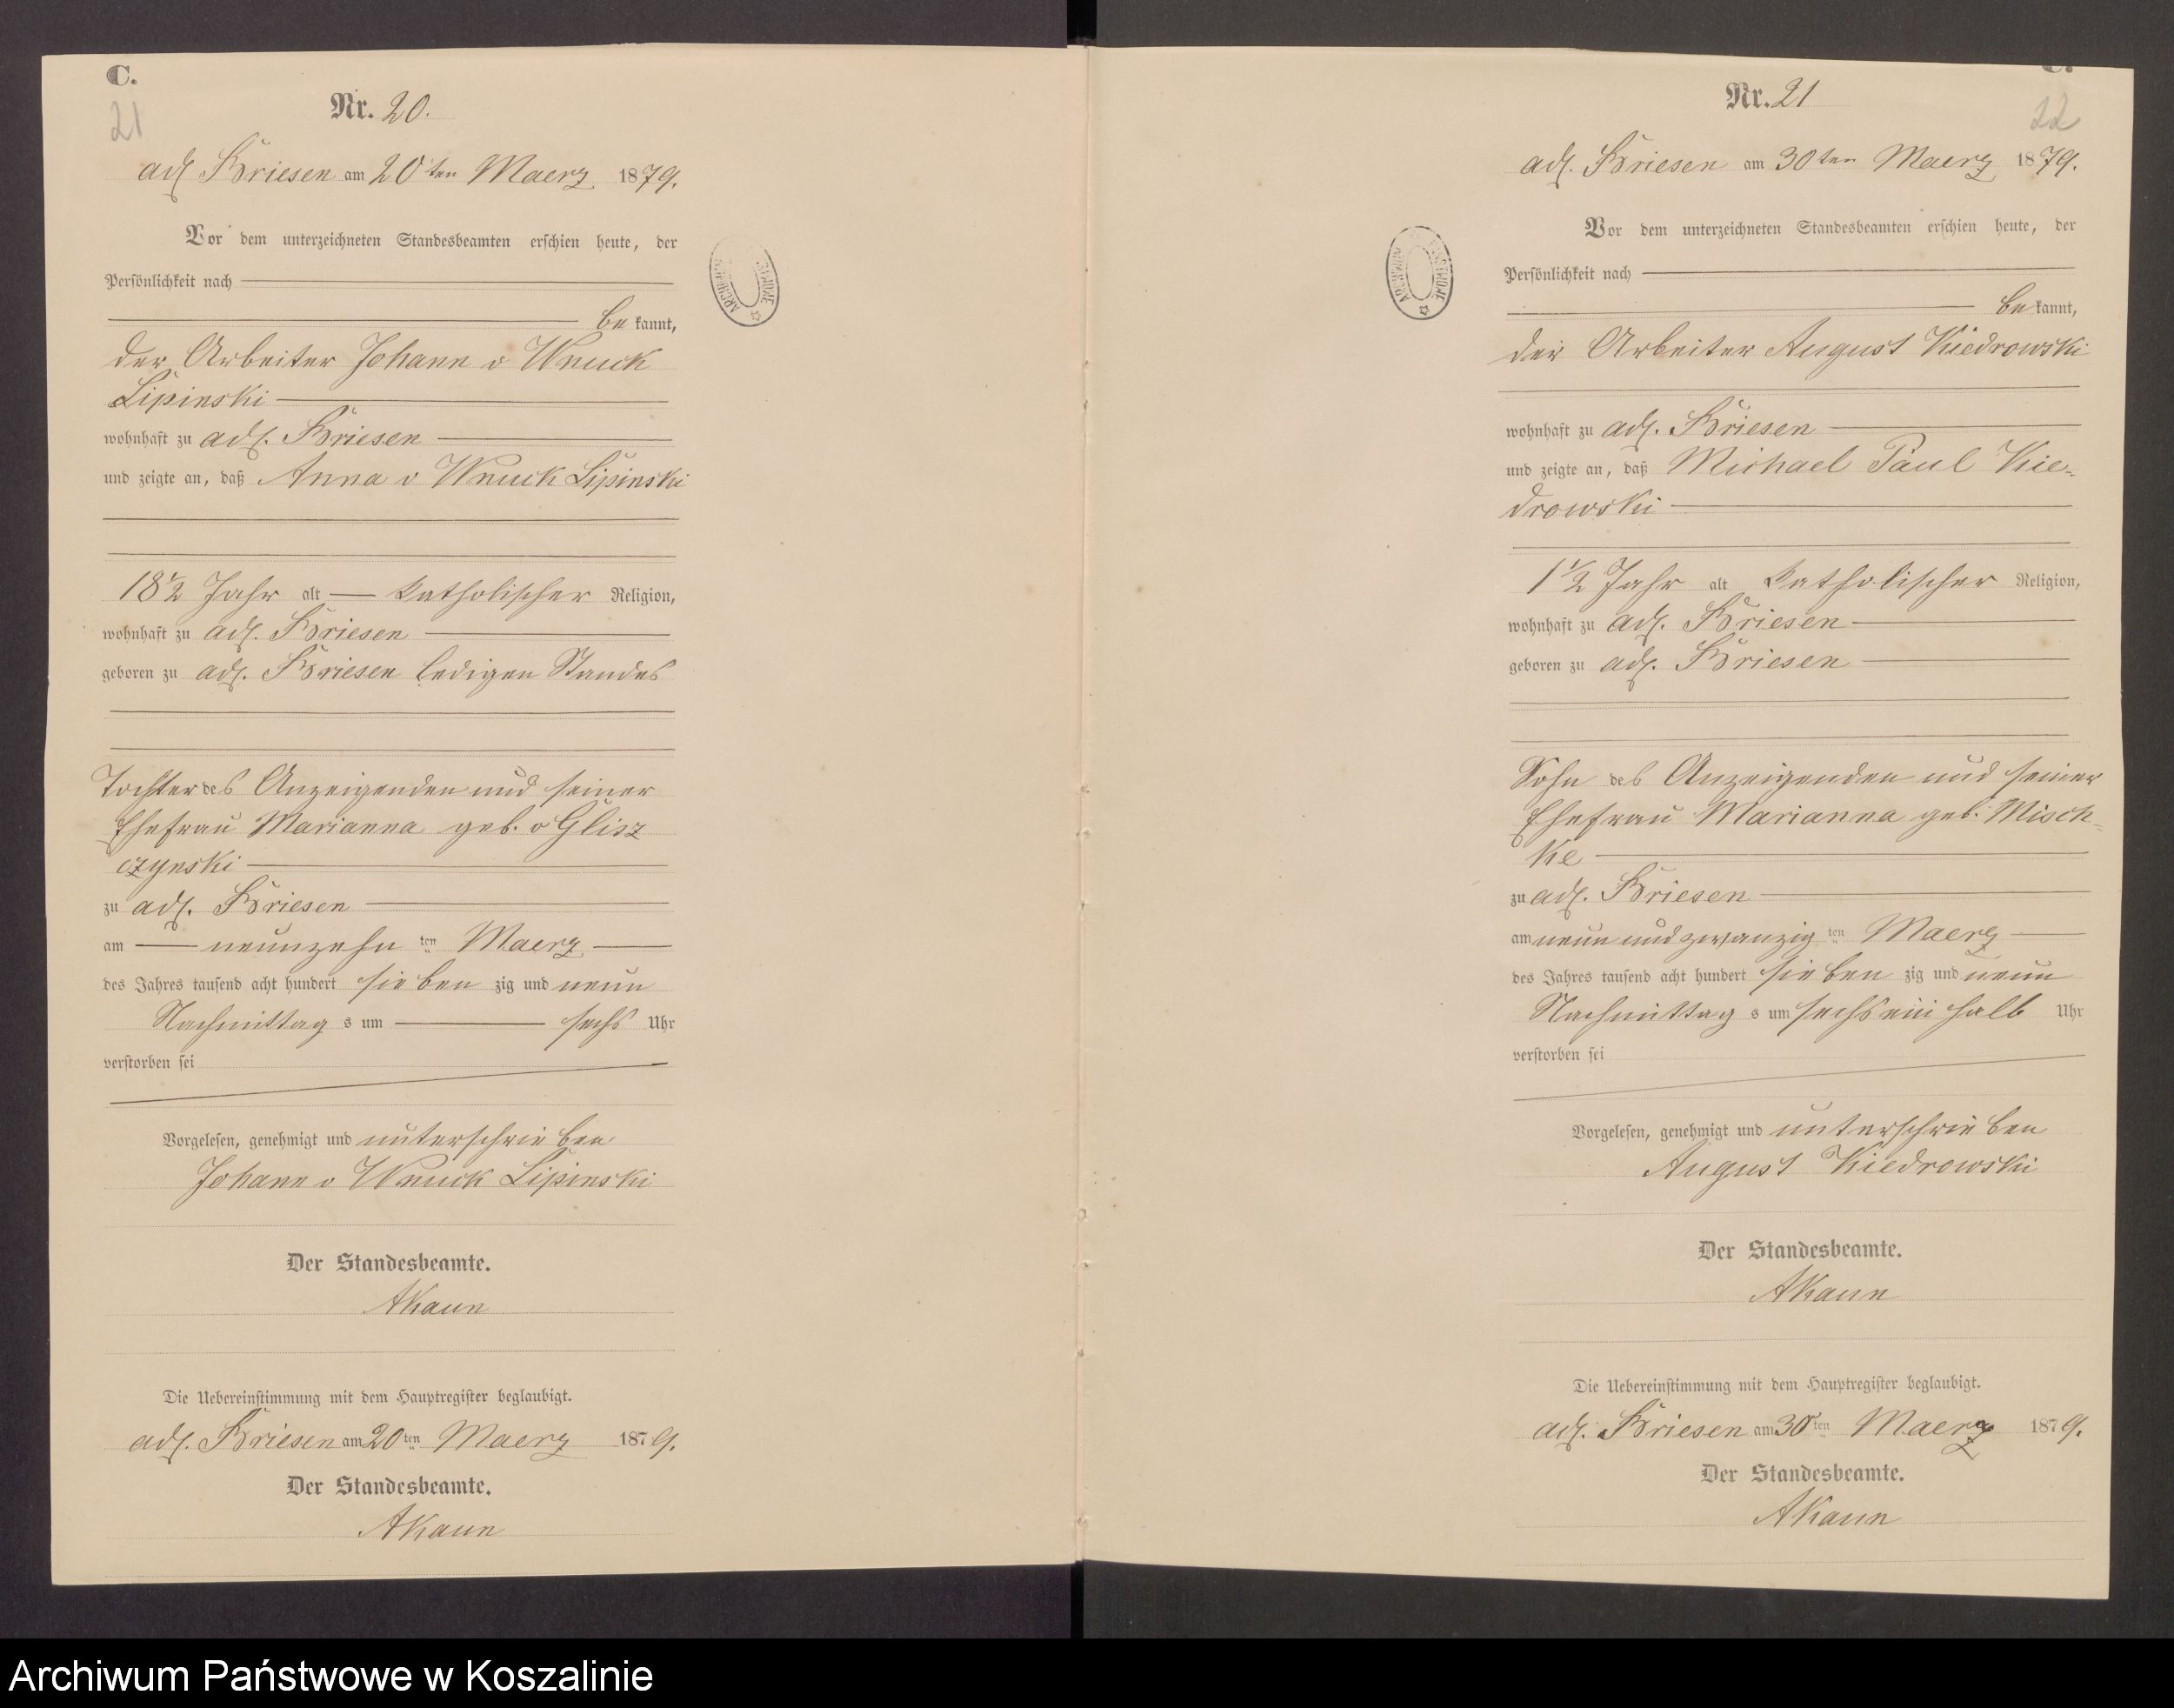 C.
21
Nr. 20.
adl. Briesen am 20ten Maerz 1879.
Vor dem unterzeichneten Standesbeamten erschien heute, der
Persönlichkeit nach
bekannt,
der Arbeiter Johann v Wnuck
Lipinski
wohnhaft zu adl. Briesen
und zeigte an, daß Anna v Wnuck Lipinski
18½ Jahr alt katholischer Religion,
wohnhaft zu adl. Briesen
geboren zu adl. Briesen ledigen Standes
Tochter des Anzeigenden und seiner
Ehefrau Marianna geb. v Glisz
czynski
zu adl. Briesen
am neunzehn ten Maerz
des Jahres tausend acht hundert siebenzig und neun
Nachmittags um sechs Uhr
verstorben sei
Vorgelesen, genehmigt und unterschrieben
Johann v Wnuck Lipinski
Der Standesbeamte.
AKaun
Die Uebereinstimmung mit dem Hauptregister beglaubigt.
adl. Briesen am 20ten Maerz 1879.
Der Standesbeamte.
AKaun
ARCHIWUM PAŃSTWOWE
C.
22
Nr. 21
adl. Briesen am 30ten Maerz 1879.
Vor dem unterzeichneten Standesbeamten erschien heute, der
Persönlichkeit nach
bekannt,
der Arbeiter August Kiedrowski
wohnhaft zu adl. Briesen
und zeigte an, daß Michael Paul Kie-
drowski
1½ Jahr alt katholischer Religion,
wohnhaft zu adl. Briesen
geboren zu adl. Briesen
Sohn des Anzeigenden und seiner
Ehefrau Marianna geb. Misch-
ke
zu adl. Briesen
am neun und zwanzig ten Maerz
des Jahres tausend acht hundert siebenzig und neun
Nachmittags um sechs ein halb Uhr
verstorben sei
Vorgelesen, genehmigt und unterschrieben
August Kiedrowski
Der Standesbeamte.
AKaun
Die Uebereinstimmung mit dem Hauptregister beglaubigt.
adl. Briesen am 30ten Maerz 1879.
Der Standesbeamte.
AKaun
ARCHIWUM PAŃSTWOWE
Archiwum Państwowe w Koszalinie